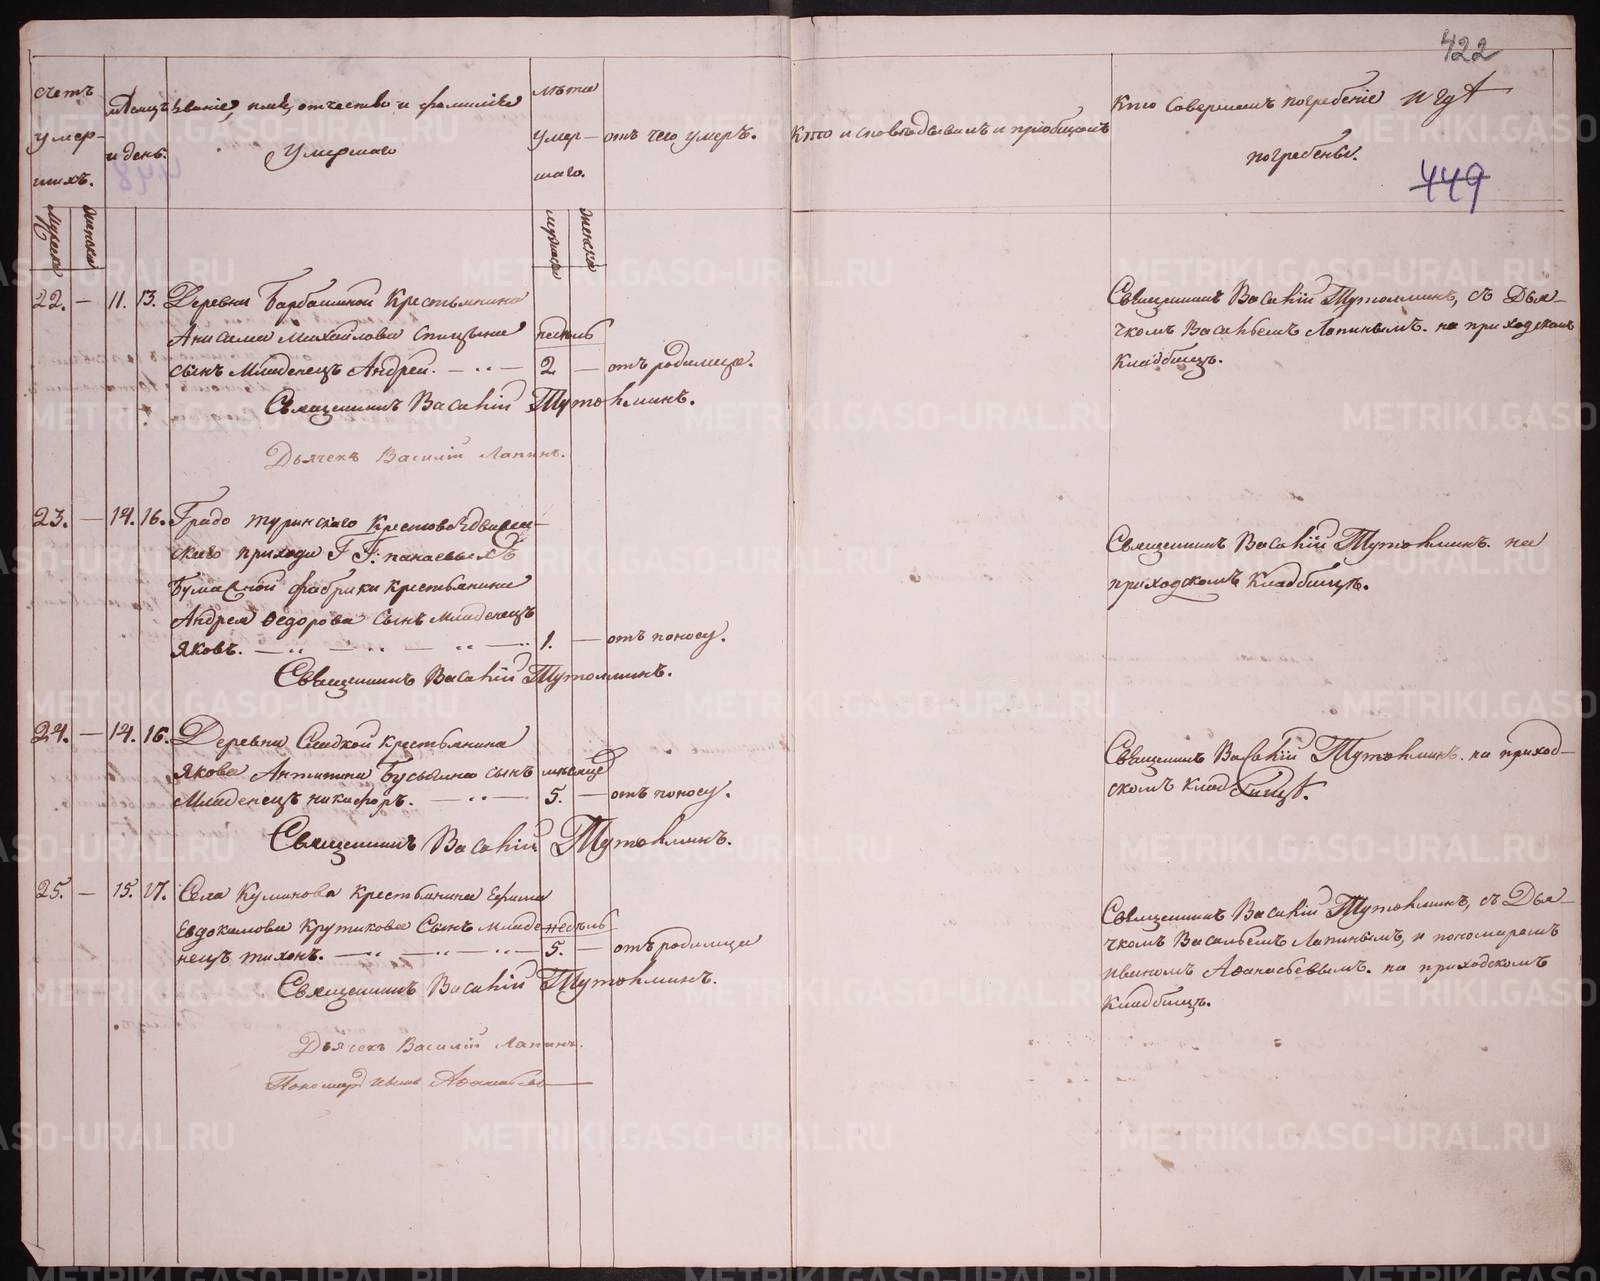 422
449
счетъ умер-шихъ.
Мужеска
Женска
мѣсяцъ и день.
званіе, имя, отчество и фамилія
Умершаго
лѣта умер-шаго.
мужеска
женска
отъ чего умеръ.
Кто исповѣдывалъ и пріобщалъ
Кто совершалъ погребеніе и гдѣ
погребены.
22. — 11. 13. Деревни Барбашиной Крестьянина
Анисима Михайлова Спицына недѣль
сынъ Младенецъ Андрей. — 2 — отъ родимца.
Священникъ Василій Тутолминъ.
Дьячекъ Василій Лапинъ.
Священникъ Василій Тутолминъ, съ Дья-
чкомъ Васильемъ Лапинымъ. на приходскомъ
Кладбищѣ.
23. — 14. 16. Градо туринскаго Крестовоздвижен-
скаго прихода Г Г: панаевыхъ
Бумажной фабрики крестьянина
Андрея Ѳедорова сынъ младенецъ
Яковъ. — 1. — отъ поносу.
Священникъ Василій Тутолминъ.
Священникъ Василій Тутолминъ. на
приходскомъ Кладбищѣ.
24. — 14. 16. Деревни Сладкой крестьянина
Якова Антипина Бусыгина сынъ мѣсяце
Младенецъ никифоръ. — 5. — отъ поносу.
Священникъ Василій Тутолминъ.
Священникъ Василій Тутолминъ. на приход-
скомъ кладбищѣ.
25. — 15. 17. Села Куминова крестьянина Ефима
Евдокимова Крутикова Сынъ младе недѣль
нецъ тихонъ. — 5. — отъ родимца
Священникъ Василій Тутолминъ.
Дьячекъ Василій Лапинъ.
Пономарь Иванъ Аѳанасьевъ
Священникъ Василій Тутолминъ, съ Дья-
чкомъ Васильемъ Лапинымъ, и пономаремъ
иваномъ Аѳанасьевымъ. на приходскомъ
Кладбищѣ.
METRIKI.GASO-URAL.RU